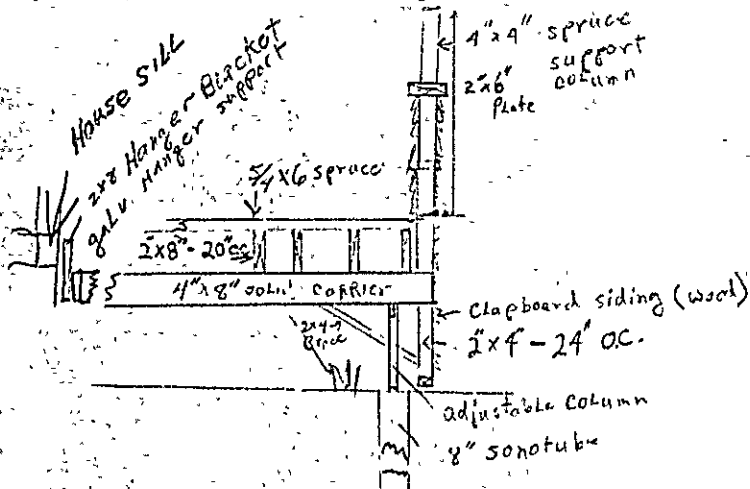 House Sill
2x8 Hanger Bracket
galv. Hanger support
4"x4" spruce
support
column
2"x6"
Plate
5/4 x6 spruce
2"x8"- 20"cc
4"x8" solid carrier
2x4
Brace
Clapboard siding (wood)
2"x4" - 24" O.C.
adjustable column
8" sonotube